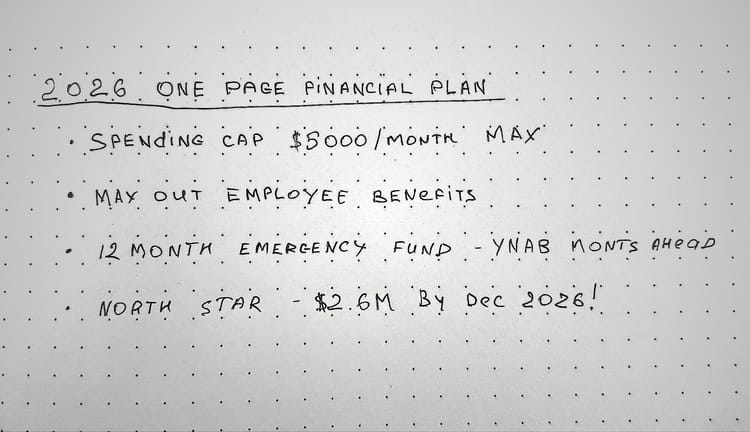 2026 ONE PAGE FINANCIAL PLAN
• SPENDING CAP $5000/MONTH MAX
• MAX OUT EMPLOYEE BENEFITS
• 12 MONTH EMERGENCY FUND - YNAB MONTS AHEAD
• NORTH STAR - $2.6M By Dec 2026!